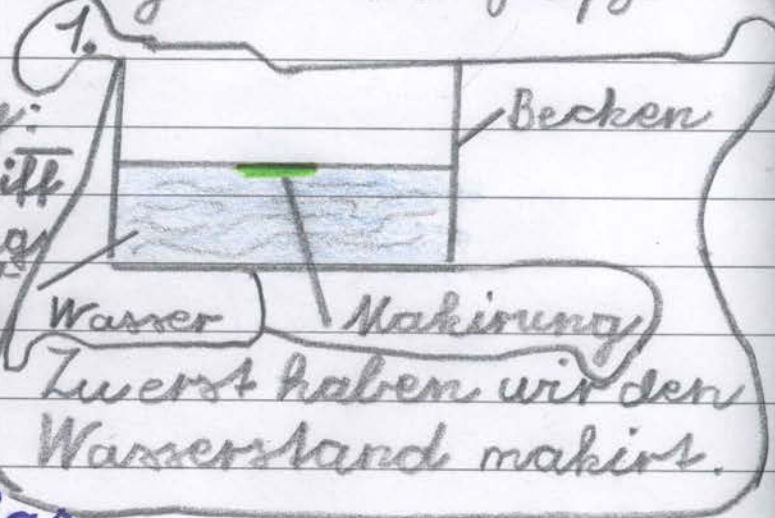 1.
Becken
Wasser
Makirung
Zuerst haben wir den
Wasserstand makirt.